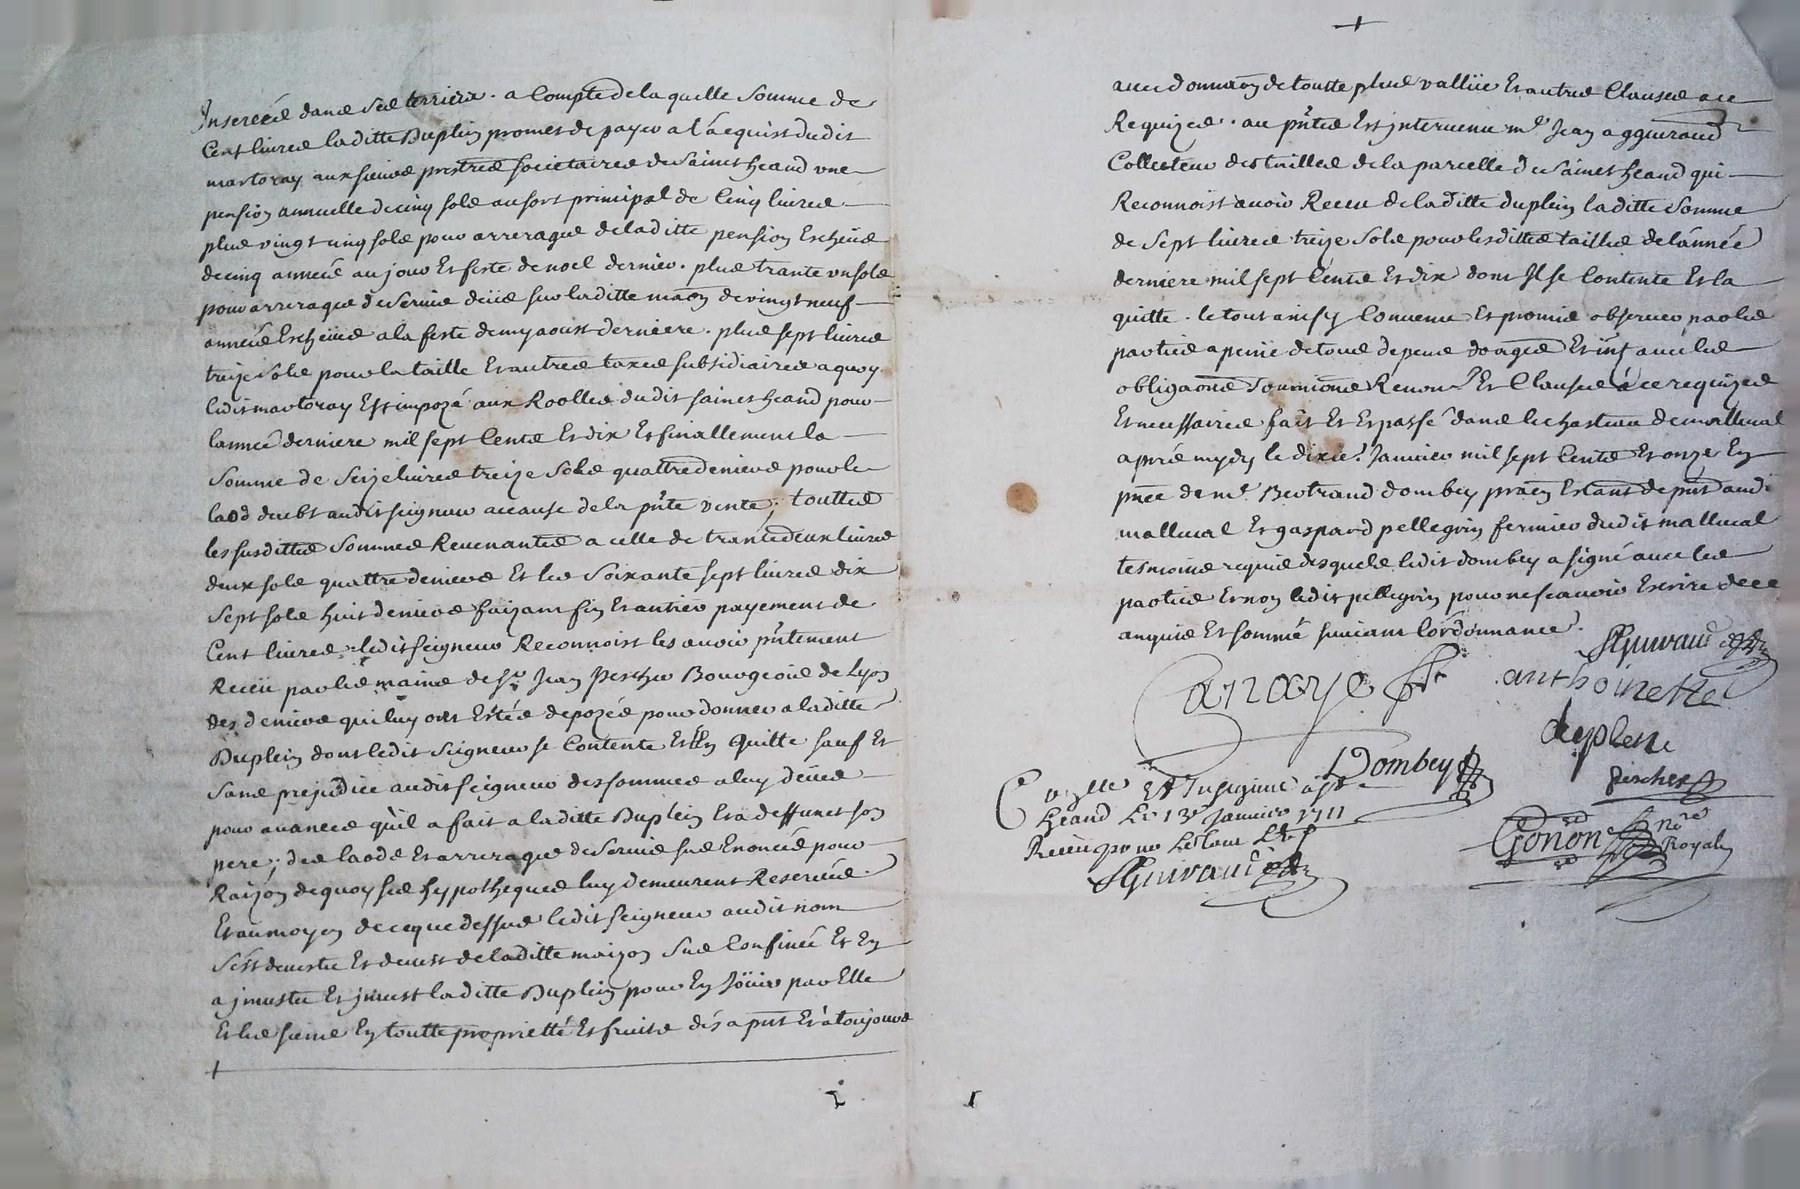 Inserééé dans ses terriers. a Compte de la quelle Somme de
Cent livres laditte Duplein promet de payer a l'acquist dudit
martoray aux sieurs prestres societaires de Sainct heand une
pension annuelle de cinq sols au sort principal de Cinq livres
plus vingt cinq sols pour arrerages de laditte pension Escheüe
de cinq anneés au jour Et feste de noel dernier. plus trante un sols
pour arrerages de Servis deüs sur laditte maon de vingt neuf
anneés Escheües a la feste de my aoust derniere. plus sept livres
treize sols pour la taille Et autres taxes subsidiaires a quoy
ledit martoray Est impozé aux Roolles dudit sainct heand pour
l'année derniere mil sept Cents Et dix Et finallement la
Somme de Seize livres treize Sols quattre deniers pour le
laod deubt audit seigneur a cause de la pnte vente; touttes
les susdittes Sommes Revenantes a celle de trante deux livres
deux sols quattre deniers Et les Soixante sept livres dix
Sept sols huit deniers faizant fin Et antier payement de
Cent livres ledit seigneur Reconnoist les avoir pntement
Receü par les mains de sr Jean Perchet Bourgeois de Lyon
des deniers qui luy ont Estés depozés pour donner a laditte
Duplein dont ledit Seigneur se Contente Et En quitte sauf Et
Sans prejudice audit seigneur des sommes a luy deües
pour avances qu'il a fait a laditte Duplein Et a deffunct son
pere; des laods Et arrerages de Servis sus Enoncés pour
Raizon de quoy ses hypotheques luy demeurent Reservés.
Et au moyen de ce que dessus ledit seigneur audit nom
S'est devestu Et devest de laditte maizon Sus Confinée Et En
a jnvestu Et jnvest laditte Duplein pour En Joüir par Elle
Et les siens En toutte proprietté Et fruits dés a pnt Et à toujours
avec donnaon de toutte plus valliie Et autres Clauses a ce
Requizes. au pntes Est jntervenu me Jean agguiraud
Collecteur des tailles de la parcelle de Sainct heand qui
Reconnoist avoir Receu de laditte duplein laditte Somme
de Sept livres treize Sols pour lesdittes tailles de l'année
derniere mil sept Cents Et dix dont Il se Contente Et la
quitte. le tout ainsy Convenu Et promis observer par les
parties a peine de tous depens domages Et int avec les
obligaons Soumions Renon. Et Clauses à ce requizes
Et necessaires fait Et Et passé dans le chasteau de malleval
aprés mydy le dixie. Janvier mil sept Cents Et onze En
pnce de me. Bertrand dombey praen Estant de pnt audi
malleval Et gaspard pellegrin fermier dudit malleval
tesmoins requis desquels ledit dombey a signé avec les
parties Et non ledit pellegrin pour ne scavoir Escrire de ce
anquis Et sommé suivant l'ordonnance.
AGuiraud
anthoinette
duplein
Dombey
Perchet
Gonon nore
Royal
Collé Et Insinué à st
heand Le 13e Janvier 1711
Receü pour
AGuiraud